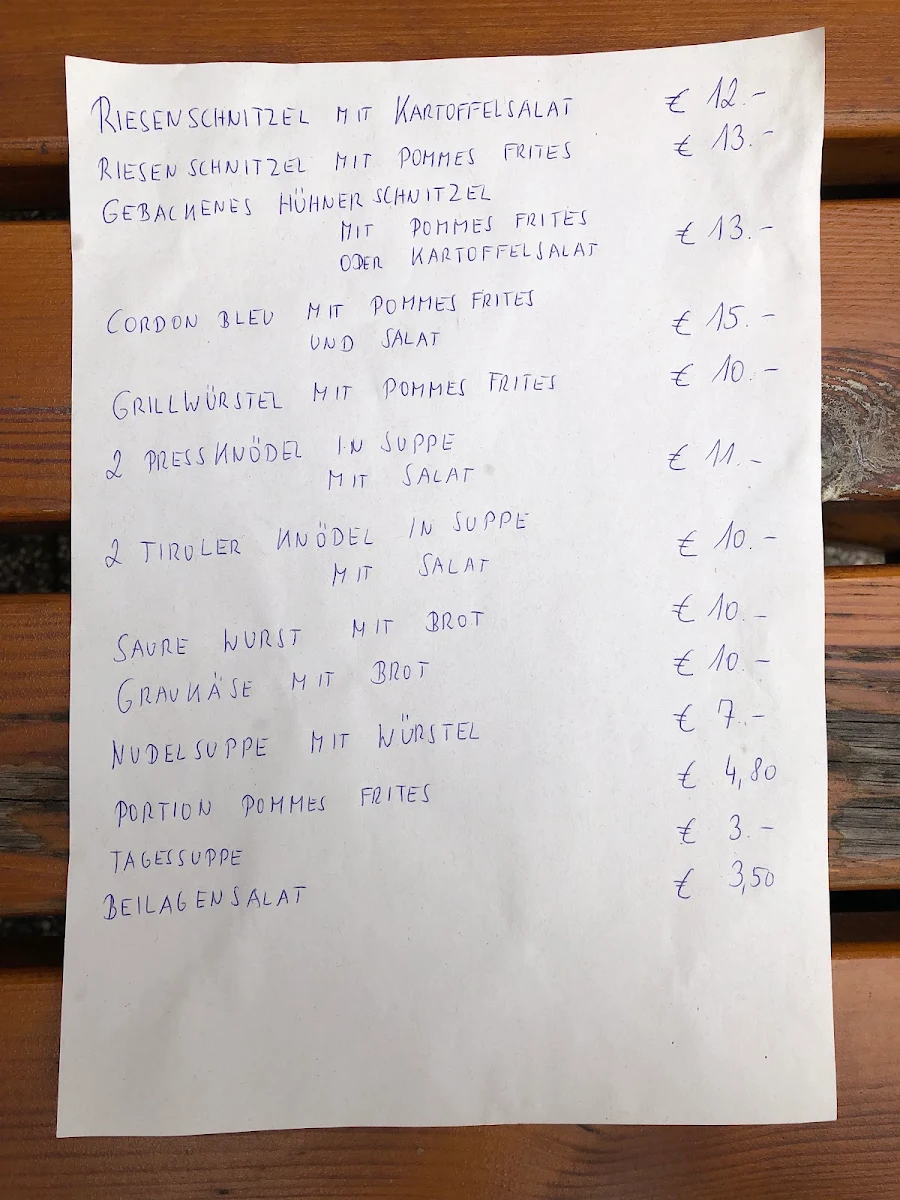 RIESENSCHNITZEL MIT KARTOFFELSALAT € 12.-
RIESENSCHNITZEL MIT POMMES FRITES € 13.-
GEBACKENES HÜHNERSCHNITZEL
MIT POMMES FRITES
ODER KARTOFFELSALAT € 13.-
CORDON BLEU MIT POMMES FRITES
UND SALAT € 15.-
GRILLWÜRSTEL MIT POMMES FRITES € 10.-
2 PRESSKNÖDEL IN SUPPE
MIT SALAT € 11.-
2 TIROLER KNÖDEL IN SUPPE
MIT SALAT € 10.-
SAURE WURST MIT BROT € 10.-
GRAUKÄSE MIT BROT € 10.-
NUDELSUPPE MIT WÜRSTEL € 7.-
PORTION POMMES FRITES € 4,80
TAGESSUPPE € 3.-
BEILAGENSALAT € 3,50